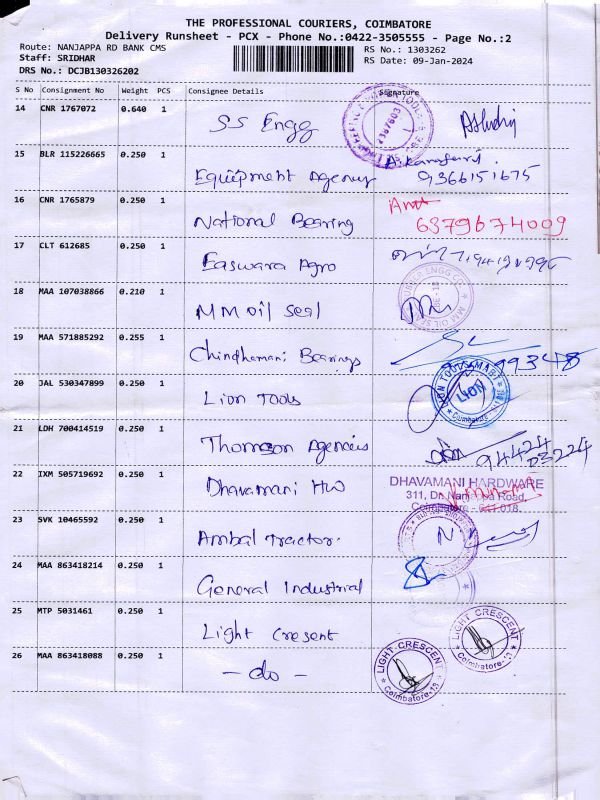 THE PROFESSIONAL COURIERS, COIMBATORE
Delivery Runsheet - PCX - Phone No.:0422-3505555 - Page No.:2
Route: NANJAPPA RD BANK CMS RS No.: 1303262
Staff: SRIDHAR RS Date: 09-Jan-2024
DRS No.: DCJB130326202
S No Consignment No Weight PCS Consignee Details Signature
14 CNR 1767072 0.640 1 SS Engg
15 BLR 115226665 0.250 1 Equipment Agency 9366151675
16 CNR 1765879 0.250 1 National Bearing 6379674009
17 CLT 612685 0.250 1 Easwara Agro
18 MAA 107038866 0.210 1 MM oil seal
19 MAA 571885292 0.255 1 Chindhamani Bearings
20 JAL 530347899 0.250 1 Lion Tools LION TOOLS MART LION Coimbatore
21 LDH 700414519 0.250 1 Thomson Agencies 94424 03224
22 IXM 505719692 0.250 1 Dhavamani HW DHAVAMANI HARDWARE
311, Dr. Nanjappa Road,
Coimbatore - 641 018.
23 SVK 10465592 0.250 1 Ambal Tractor.
24 MAA 863418214 0.250 1 General Industrial
25 MTP 5031461 0.250 1 Light Cresent LIGHT CRESCENT Coimbatore-18
26 MAA 863418088 0.250 1 - do - LIGHT CRESCENT Coimbatore-18